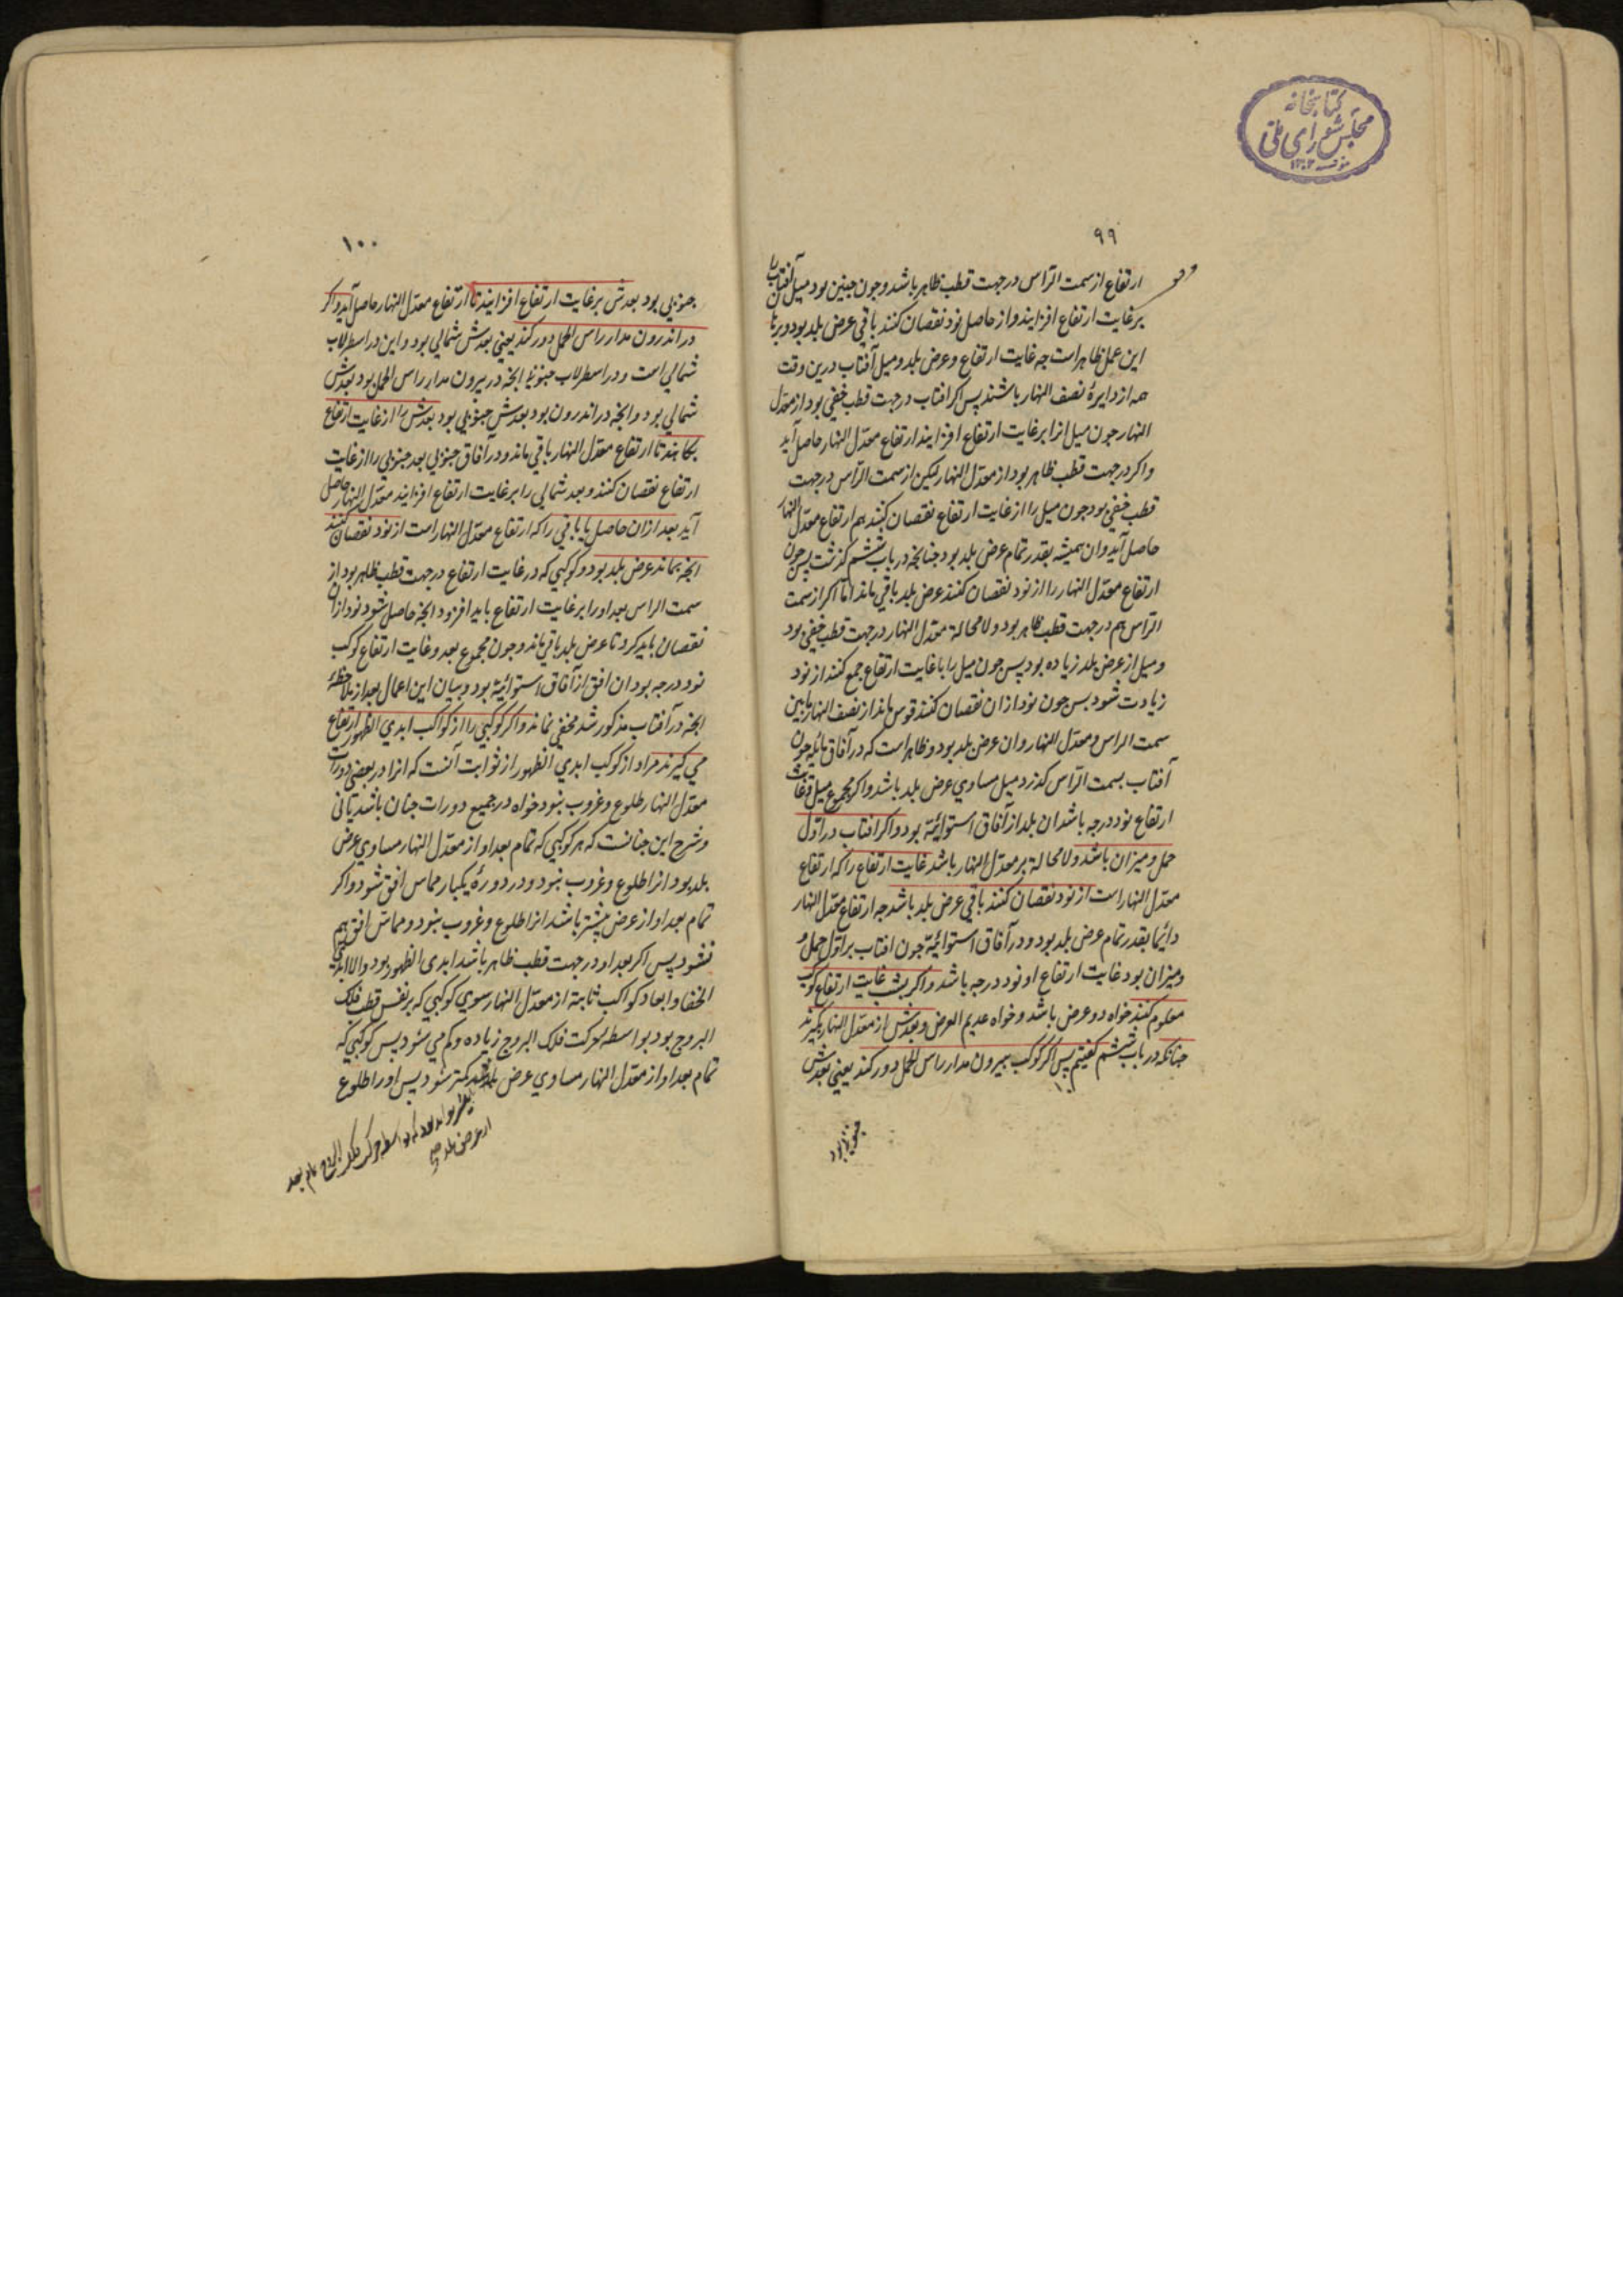 کتابخانه
مجلس شورای ملی
۱۳۰۲
۹۹
ارتفاع از سمت الرّاس در جهت قطب ظاهر باشد و چون چنین بود میل آفتاب را
بر غایت ارتفاع افزایند و از حاصل نود نقصان کنند باقی عرض بلد بود و برهان
این عمل ظاهر است چه غایت ارتفاع و عرض بلد و میل آفتاب درین وقت
همه از دایرهٔ نصف النهار باشند پس اکر افتاب در جهت قطب خفی بود از معدّل
النهار جون میل انرا بر غایت ارتفاع افزایند ارتفاع معدّل النهار حاصل آید
و اکر در جهت قطب ظاهر بود از معدّل النهار لیکن از سمت الرّاس در جهت
قطب خفی بود جون میل را از غایت ارتفاع نقصان کنند هم ارتفاع معدّل النهار
حاصل آید و ان همیشه بقدر تمام عرض بلد بود جنانجه در باب ششم کذشت پس جون
ارتفاع معدّل النهار را از نود نقصان کنند عرض بلد باقی ماند امّا اکر از سمت
الرّاس هم در جهت قطب ظاهر بود و لا محالة معدّل النهار در جهت قطب خفی بود
و میل از عرض بلد زیاده بود پس جون میل را با غایت ارتفاع جمع کنند از نود
زیادت شود بس جون نود ازان نقصان کنند قوس ماند از نصف النهار مابین
سمت الراس و معدّل النهار و ان عرض بلد بود و ظاهر است که در آفاق مائله جون
آفتاب بسمت الرّاس کذرد میل مساوی عرض بلد باشد و اکر مجموع میل و غایت
ارتفاع نود درجه باشد ان بلد از آفاق استوائیّة بود و اکر افتاب در اوّل
حمل و میزان باشد و لا محالة بر معدّل النهار باشد غایت ارتفاع را که ارتفاع
معدّل النهار است از نود نقصان کنند باقی عرض بلد باشد جه ارتفاع معدّل النهار
دائما بقدر تمام عرض بلد بود و در آفاق استوائیّة جون افتاب بر اوّل حمل و
و میزان بود غایت ارتفاع او نود درجه باشد و اکر بشب غایت ارتفاع کوکب
معلوم کنند خواه ذو عرض باشد و خواه عدیم العرض و بعدش از معدّل النهار بکیرند
جنانکه در باب ششم کفتیم پس اکر کوکب بیرون مدار راس الحمل دور کند یعنی بعدش
جنوبی بود
۱۰۰
جنوبی بود بعدش بر غایت ارتفاع افزایند تا ارتفاع معدّل النهار حاصل آید و اکر
در اندرون مدار راس الحمل دور کند یعنی بعدش شمالی بود و این در اسطرلاب
شمالی است و در اسطرلاب جنوبی انجه در بیرون مدار راس الحمل بود بعدش
شمالی بود و انجه در اندرون بود بعدش جنوبی بود بعدش را از غایت ارتفاع
بکاهند تا ارتفاع معدّل النهار باقی ماند و در آفاق جنوبی بعد جنوبی را از غایت
ارتفاع نقصان کنند و بعد شمالی را بر غایت ارتفاع افزایند معدّل النهار حاصل
آید بعد ازان حاصل یا باقی را که ارتفاع معدّل النهار است از نود نقصان کنند
انجه بماند عرض بلد بود و کوکبی که در غایت ارتفاع در جهت قطب ظاهر بود از
سمت الراس بعد او را بر غایت ارتفاع باید افزود انجه حاصل شود نود ازان
نقصان باید کرد تا عرض بلد باقی ماند و جون مجموع بعد و غایت ارتفاع کوکب
نود درجه بود ان افق از آفاق استوائیّة بود و بیان این اعمال بعد از ملاحظهٔ
انجه در آفتاب مذکور شد مخفی نماند و اکر کوکبی را از کواکب ابدی الظهور ارتفاع
می کیرند مراد از کوکب ابدی الظهور از ثوابت آنست که انرا در بعضی دورات
معدّل النهار طلوع و غروب نبود خواه در جمیع دورات جنان باشد یا نی
و شرح این جنانست که هر کوکبی که تمام بعد او از معدّل النهار مساوی عرض
بلد بود انرا طلوع و غروب نبود و در دورهٔ یکبار مماس افق شود و اکر
تمام بعد او از عرض بیشتر باشد انرا طلوع و غروب نبود و مماس افق هم
نشود پس اکر بعد او در جهت قطب ظاهر باشد ابدی الظهور بود و الا ابدی
الخفا و ابعاد کواکب ثابته از معدّل النهار سوی کوکبی که بر نفس قطب فلک
البروج بود بواسطه حرکت فلک البروج زیاده و کم می شود پس کوکبی که
تمام بعد او از معدّل النهار مساوی عرض بلد باشد کمتر شود پس او را طلوع
حرکت فلک البروج تمام بعد
از عرض بلد